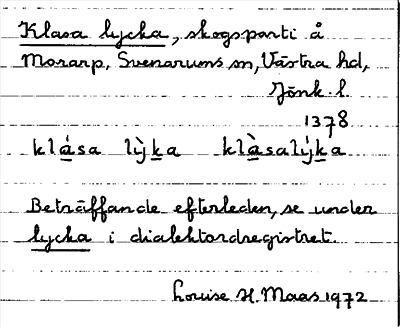 Klasa lycka, skogsparti å
Morarp, Svenarums sn, Västra hd,
Jönk. l.
1378
klása lỳka klàsalýka
Beträffande efterleden, se under
lycka i dialektordregistret.
Louise H. Maas 1972